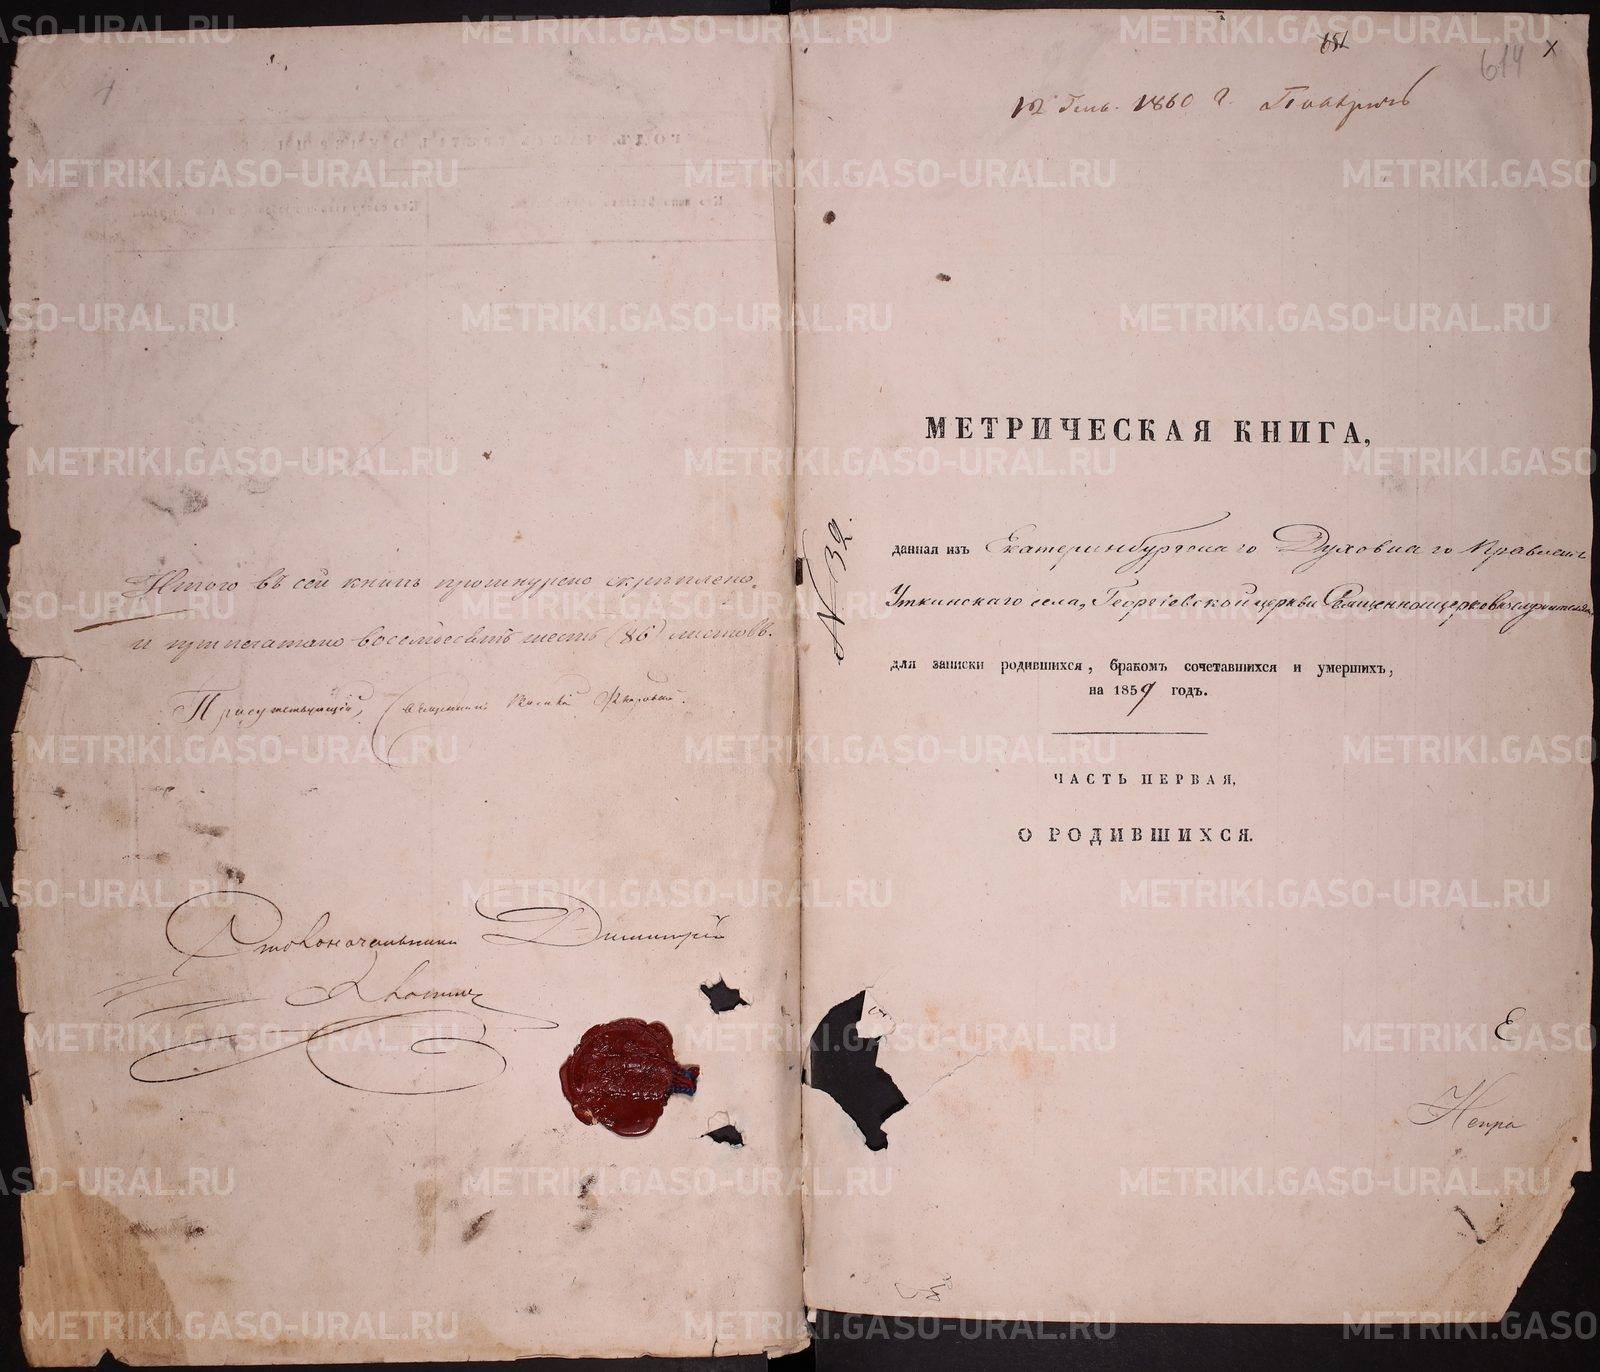 Итого въ сей книгѣ прошнурено скрѣплено
и припечатано восемьдесятъ шесть (86) листовъ.
Присутствующій, Священникъ
Столоначальникъ Димитрій
614 х
12 Генв. 1860 г.
МЕТРИЧЕСКАЯ КНИГА,
№ 32.
данная изъ Екатеринбургскаго Духовнаго Правленія
Уткинскаго села, Георгіевской церкви Священноцерковнослужителямъ
для записки родившихся, бракомъ сочетавшихся и умершихъ,
на 1859 годъ.
ЧАСТЬ ПЕРВАЯ,
О РОДИВШИХСЯ.
Е
METRIKI.GASO-URAL.RU